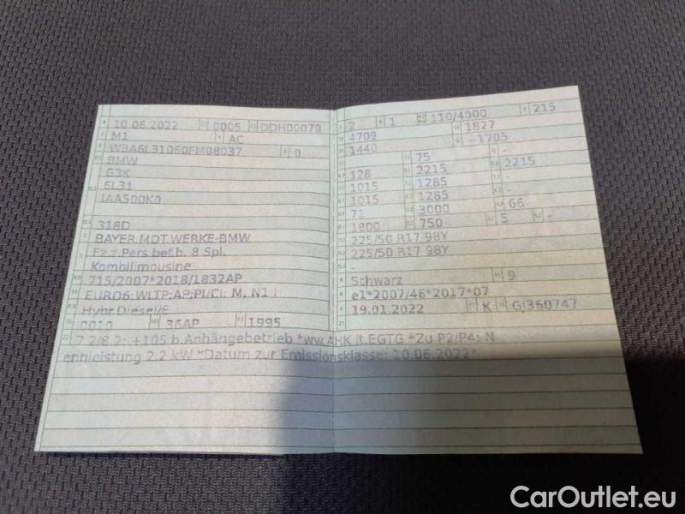 10.06.2022 0005 DDH00079
M1 AC
0
BMW
G3K
6L31
IAA500K0
318D
BAYER.MOT.WERKE-BMW
Fz.z.Pers.bef.b. 8 Spl.
Kombilimousine
715/2007*2018/1832AP
EURO6;WLTP;AP;PI/CI; M, N1 I
Hybr.Diesel/E
0010 36AP 1995
2 1 110/4000 215
4709 1827
1440 -1705
75 -
128 2215 2215
1015 1285 -
1015 1285 -
71 3000 66
1800 750 5 -
225/50 R17 98Y
225/50 R17 98Y
-
-
Schwarz 9
e1*2007/46*2017*07
19.01.2022 K GJ360747
7.2/8.2: +105 b.Anhängebetrieb
leistung 2.2 kW *Datum zur Emissionsklasse: 10.06.2022*
CarOutlet.eu